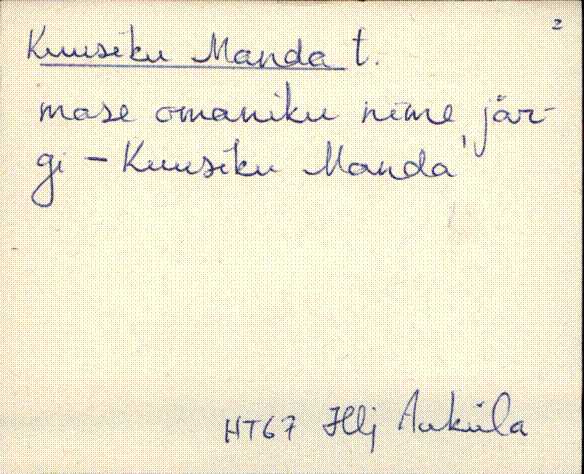 2
Kuusiku Manda t.
mase omaniku nime jär-
gi - Kuusiku Manda'
HT67 Hlj Auküla